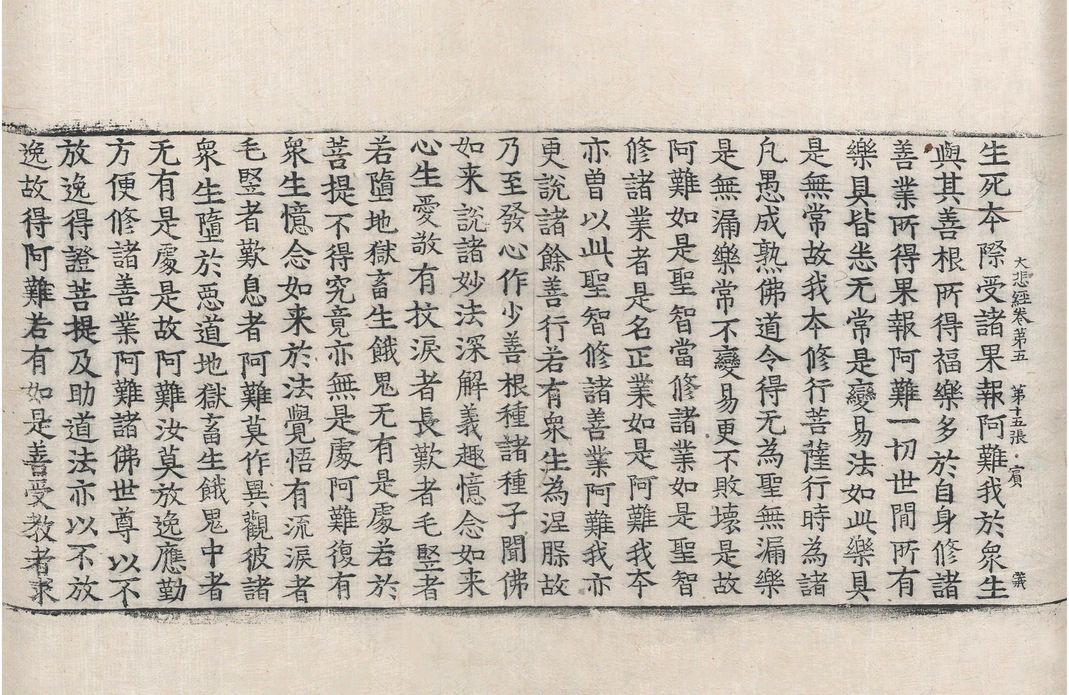 大悲經卷第五 第十五張 賓 義
生死本際受諸果報阿難我於衆生
與其善根所得福樂多於自身修諸
善業所得果報阿難一切世間所有
樂具皆悉无常是變易法如此樂具
是無常故我本修行菩薩行時為諸
凡愚成熟佛道令得无為聖無漏樂
是無漏樂常不變易更不敗壞是故
阿難如是聖智當修諸業如是聖智
修諸業者是名正業如是阿難我本
亦曽以此聖智修諸善業阿難我亦
更說諸餘善行若有衆生為涅槃故
乃至發心作少善根種諸種子聞佛
如来說諸妙法深解義趣憶念如来
心生愛敬有抆淚者長歎者毛竪者
若墮地獄畜生餓鬼无有是處若於
菩提不得究竟亦無是處阿難復有
衆生憶念如来於法覺悟有流淚者
毛竪者歎息者阿難莫作異觀彼諸
衆生墮於惡道地獄畜生餓鬼中者
无有是處是故阿難汝莫放逸應勤
方便修諸善業阿難諸佛世尊以不
放逸得證菩提及助道法亦以不放
逸故得阿難若有如是善受教者求